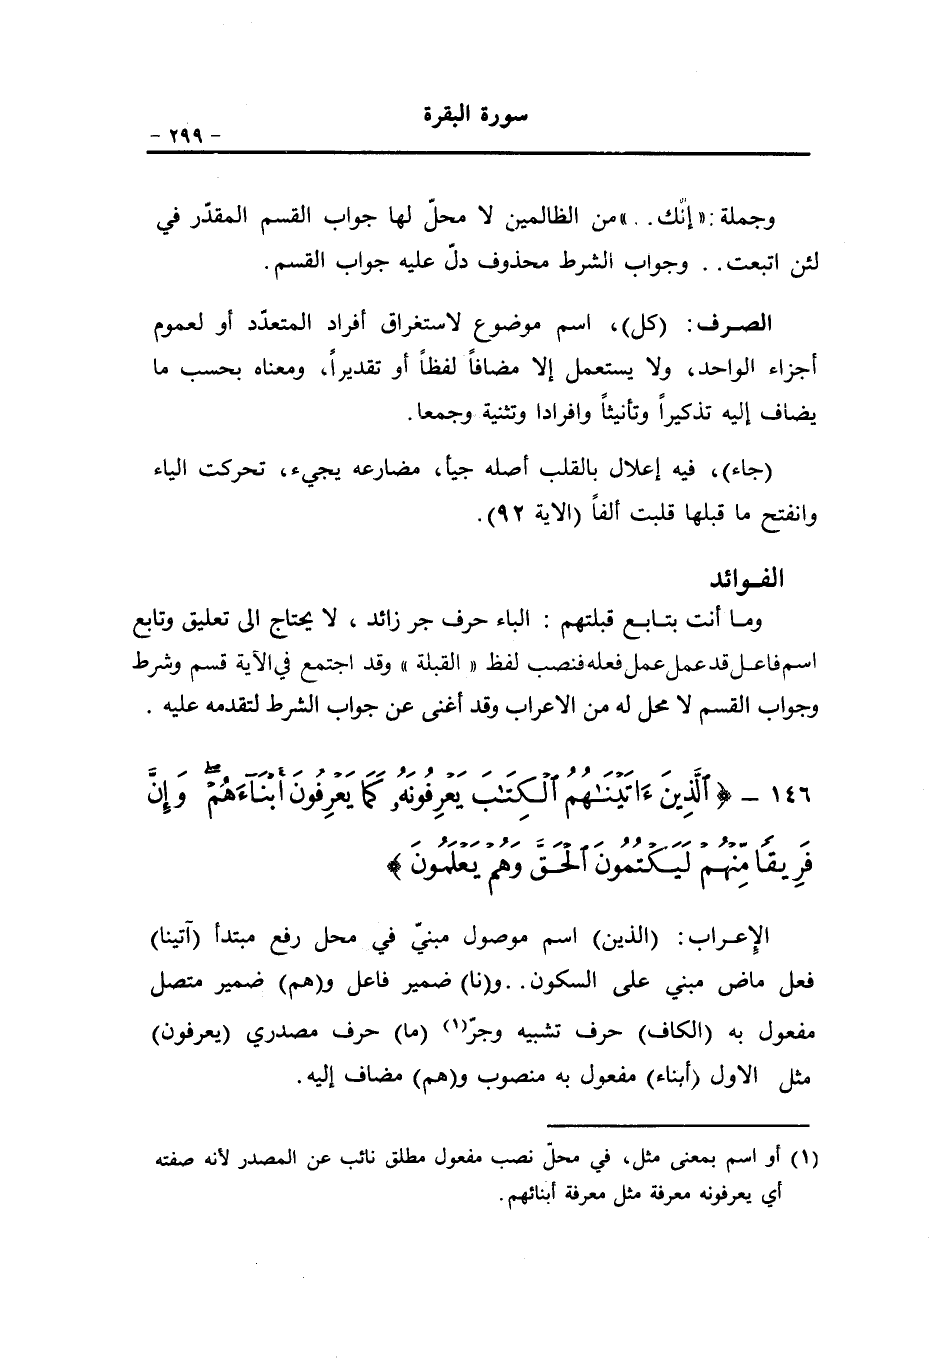 سورة البقرة
- ٢٩٩ -
وجملة : « إنّك . . » من الظالمين لا محلّ لها جواب القسم المقدّر في
لئن اتبعت . . وجواب الشرط محذوف دلّ عليه جواب القسم .
الصرف : (كل) ، اسم موضوع لاستغراق أفراد المتعدّد أو لعموم
أجزاء الواحد ، ولا يستعمل إلا مضافاً لفظاً أو تقديراً ، ومعناه بحسب ما
يضاف إليه تذكيراً وتأنيثاً وافرادا وتثنية وجمعا .
(جاء) ، فيه إعلال بالقلب أصله جيأ ، مضارعه يجيء ، تحركت الياء
وانفتح ما قبلها قلبت ألفاً (الاية ٩٢) .
الفوائد
وما أنت بتابع قبلتهم : الباء حرف جر زائد ، لا يحتاج الى تعليق وتابع
اسم فاعل قد عمل عمل فعله فنصب لفظ « القبلة » وقد اجتمع في الآية قسم وشرط
وجواب القسم لا محل له من الاعراب وقد أغنى عن جواب الشرط لتقدمه عليه .
١٤٦ - ﴿ ٱلَّذِينَ ءَاتَيْنَـٰهُمُ ٱلْكِتَـٰبَ يَعْرِفُونَهُۥ كَمَا يَعْرِفُونَ أَبْنَآءَهُمْ ۖ وَإِنَّ
فَرِيقًا مِّنْهُمْ لَيَكْتُمُونَ ٱلْحَقَّ وَهُمْ يَعْلَمُونَ ﴾
الإعراب : (الذين) اسم موصول مبنيّ في محل رفع مبتدأ (آتينا)
فعل ماض مبني على السكون . . و(نا) ضمير فاعل و(هم) ضمير متصل
مفعول به (الكاف) حرف تشبيه وجرّ(١) (ما) حرف مصدري (يعرفون)
مثل الاول (أبناء) مفعول به منصوب و(هم) مضاف إليه .
(١) أو اسم بمعنى مثل ، في محلّ نصب مفعول مطلق نائب عن المصدر لأنه صفته
أي يعرفونه معرفة مثل معرفة أبنائهم .